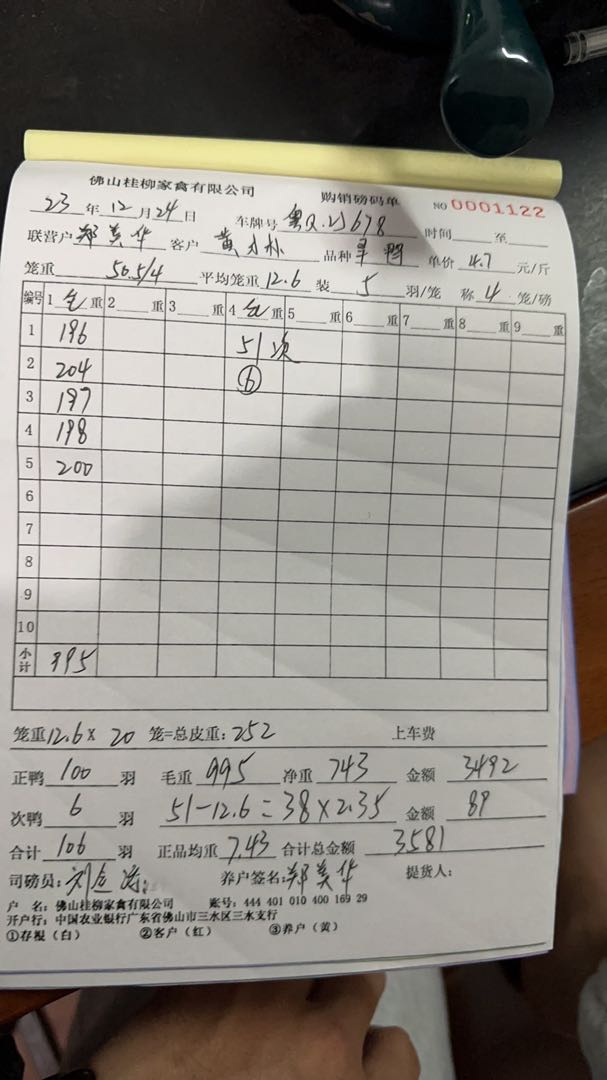 佛山桂柳家禽有限公司 购销磅码单 NO 0001122
23 年 12 月 24 日 车牌号 粤Q 678 时间 至
联营户 郑美华 客户 黄 林 品种 鸭 单价 4.7 元/斤
笼重 50.5/4 平均笼重 12.6 装 5 羽/笼 称 4 笼/磅
编号 1 仓 重 2 重 3 重 4 仓 重 5 重 6 重 7 重 8 重 9 重
1 196 51次
2 204 ⑥
3 197
4 198
5 200
6
7
8
9
10
小计 995
笼重 12.6 × 20 笼=总皮重: 252 上车费
正鸭 100 羽 毛重 995 净重 743 金额 3492
次鸭 6 羽 51-12.6=38×2.35 金额 89
合计 106 羽 正品均重 7.43 合计总金额 3581
司磅员: 刘 养户签名: 郑美华 提货人:
户 名: 佛山桂柳家禽有限公司 账号: 444 401 010 400 169 29
开户行: 中国农业银行广东省佛山市三水区三水支行
①存根（白） ②客户（红） ③养户（黄）